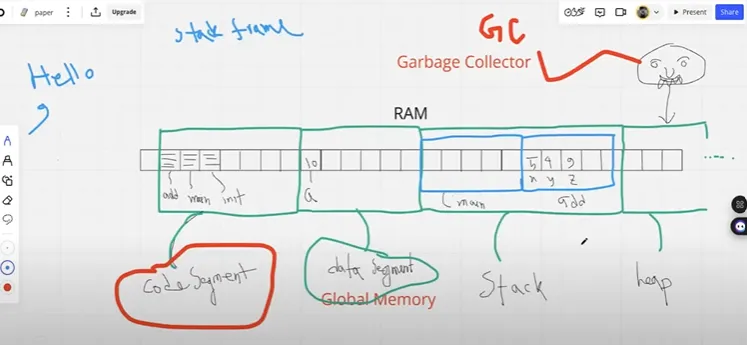 paper
Upgrade
Present
Share
stack frame
GC
Garbage Collector
Hello
RAM
10
5 4 9
add main init
a
x y z
main
add
code segment
data segment
Global Memory
Stack
heap